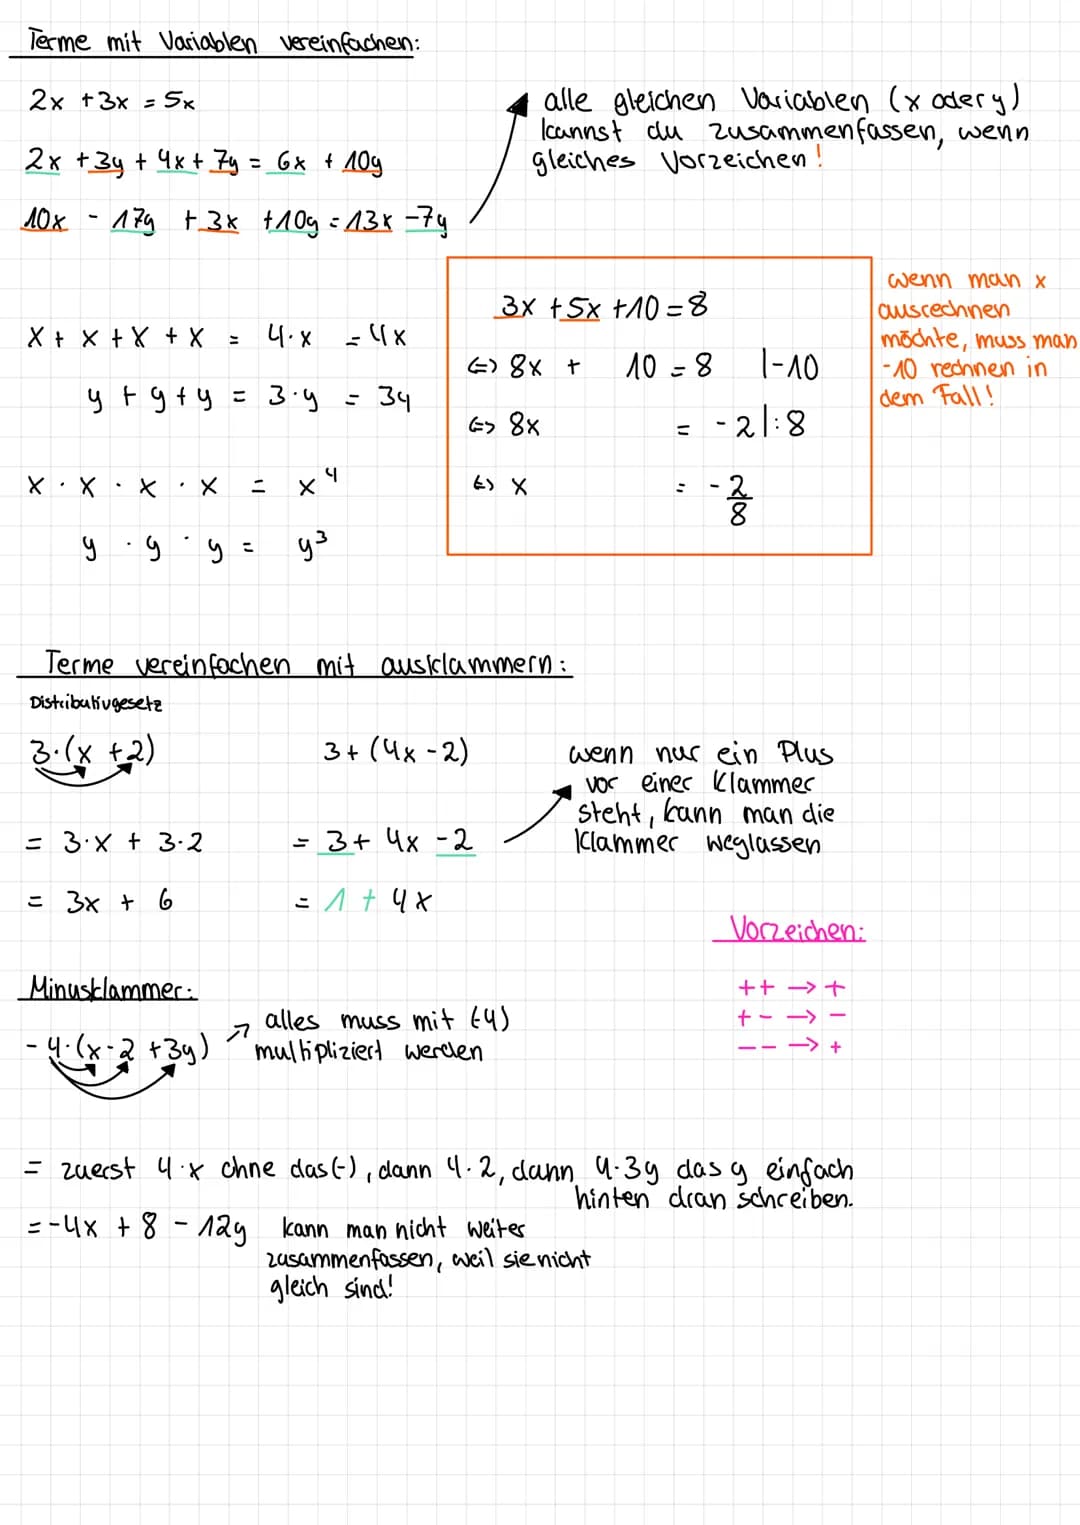 Terme mit Variablen vereinfachen:
2x + 3x = 5x
2x + 3y + 4x + 7y = 6x + 10y
10x - 17y + 3x + 10y = 13x - 7y
alle gleichen Variablen (x oder y)
kannst du zusammenfassen, wenn
gleiches Vorzeichen!
x + x + x + x = 4·x = 4x
y + y + y = 3·y = 3y
x · x · x · x = x⁴
y · y · y = y³
3x + 5x + 10 = 8
⇔ 8x + 10 = 8 |-10
⇔ 8x = -2 |:8
⇔ x = -2/8
wenn man x
ausrechnen
möchte, muss man
-10 rechnen in
dem Fall!
Terme vereinfachen mit ausklammern:
Distributivgesetz
3·(x + 2)
= 3·x + 3·2
= 3x + 6
3 + (4x - 2)
= 3 + 4x - 2
= 1 + 4x
wenn nur ein Plus
vor einer Klammer
steht, kann man die
Klammer weglassen
Vorzeichen:
++ → +
+- → -
-- → +
Minusklammer:
- 4·(x - 2 + 3y)
alles muss mit (-4)
multipliziert werden
= zuerst 4·x ohne das (-), dann 4·2, dann 4·3y das y einfach
hinten dran schreiben.
= -4x + 8 - 12y kann man nicht weiter
zusammenfassen, weil sie nicht
gleich sind!